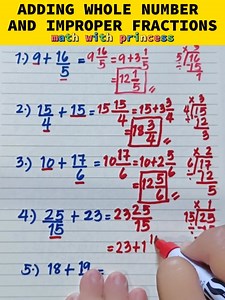 ADDING WHOLE NUMBER
AND IMPROPER FRACTIONS
math with princess
1.) 9 + 16/5 = 9 16/5 = 9 + 3 1/5
= 12 1/5
2.) 15/4 + 15 = 15 15/4 = 15 + 3 3/4
= 18 3/4
3.) 10 + 17/6 = 10 17/6 = 10 + 2 5/6
= 12 5/6
4.) 25/15 + 23 = 23 25/15
= 23 + 1
5.) 18 + 19 =